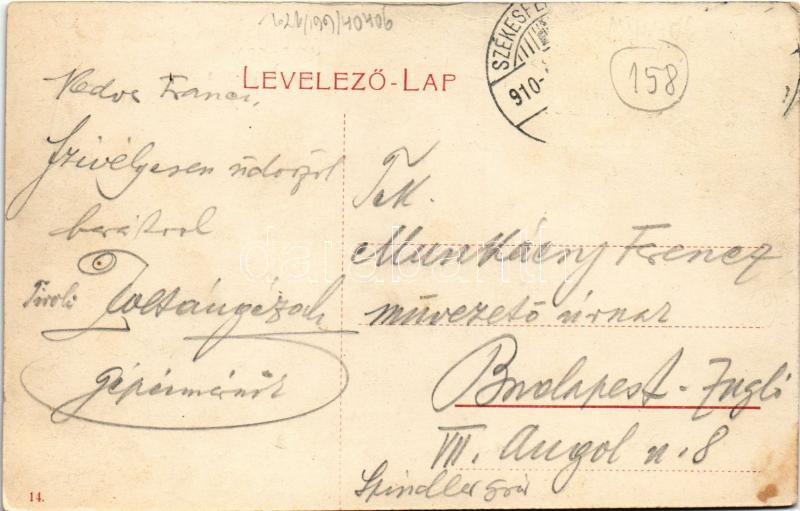 621/199/40406
LEVELEZŐ-LAP
SZÉKESFE
910
158
Kedve Franci,
Szivélyesen üdvözöl
barátod
Tivoli Zoltángézáck
gépészmérnök
Tek.
Munkácsy Ferencz
művezető úrnak
Budapest-Zugló
VII. Angol u. 8
Spindler gyár
14.
darabanth